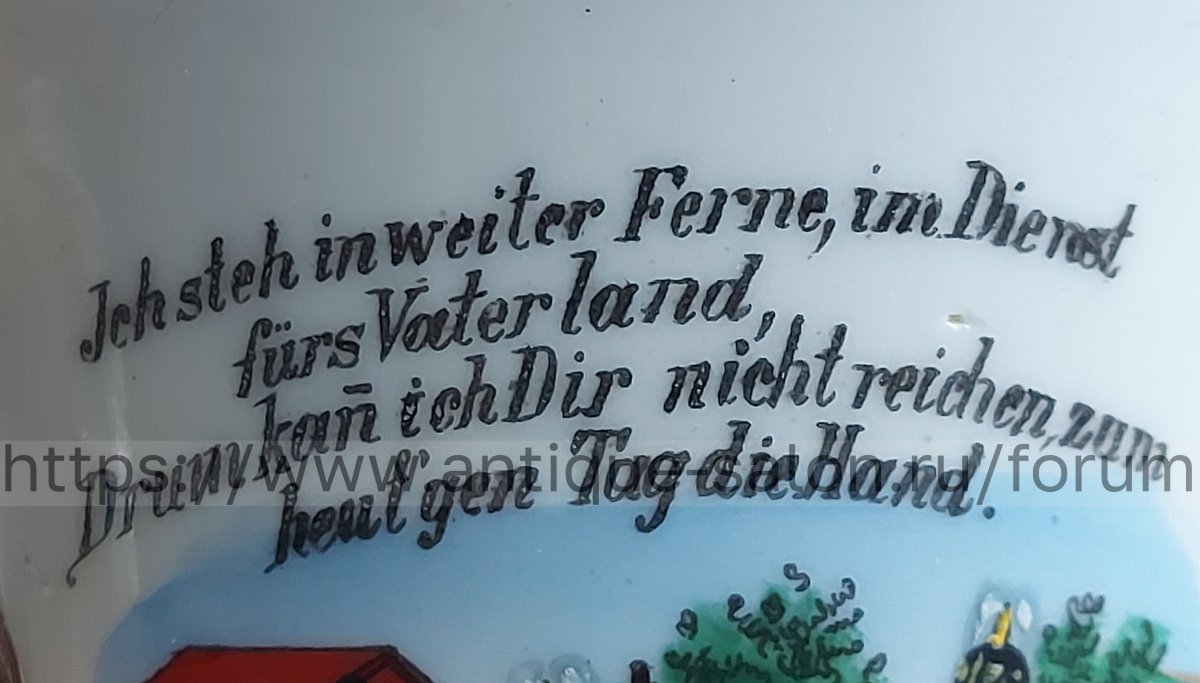 Jch steh in weiter Ferne, im Dienst
fürs Vaterland,
Drum kan̄ ich Dir nicht reichen, zum
heut'gen Tag die Hand.
https://www.antique-salon.ru/forum